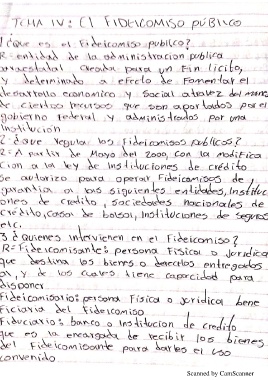 TEMA IV: El FIDEICOMISO PÚBLICO
1 ¿que es el Fideicomiso publico?
R- entidad de la administracion publica
paraestatal creada para un fin licito,
y determinado a efecto de Fomentar el
desarrollo economico y Social atravez del manejo
de ciertos recursos que son aportados por el
gobierno federal y administrados por una
Institucion
2 ¿ que Regula los Fideicomisos publicos?
R= A partir de Mayo del 2000, con la modifica
cion a la ley de Instituciones de crédito
Se autorizo para operar Fideicomisos de
garantia a las siguientes entidades, Instituci
ones de credito, Sociedades nacionales de
credito, casa de bolsa, Instituciones de seguros
etc.
3 ¿Quienes intervienen en el Fideicomiso?
R= Fideicomisante: persona Fisica o Juridica
que destina los bienes o derechos entregados
y de los cuales tiene capacidad para
disponer
Fideicomisario: persona Fisica o Juridica bene
Ficiaria del Fideicomiso
Fiduciario: banco o Institucion de credito
que es la encargada de recibir los bienes
del Fideicomisante para darles el uso
convenido
Scanned by CamScanner